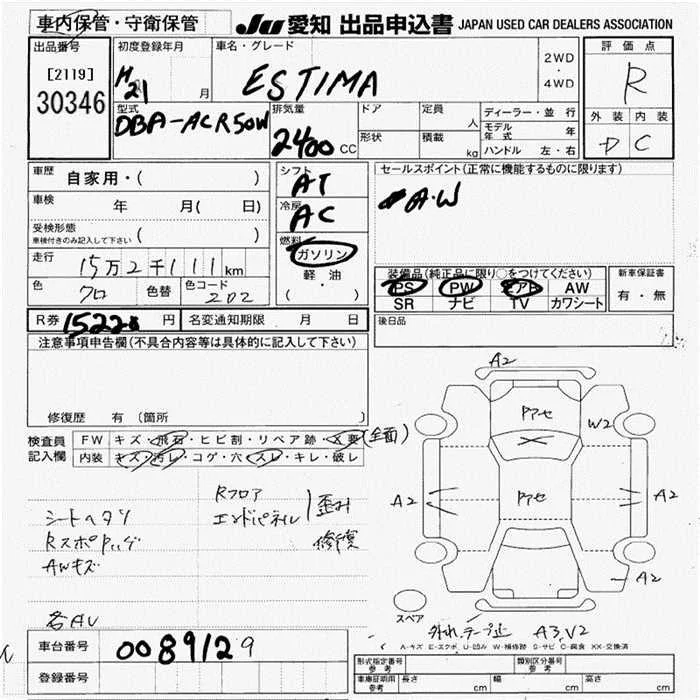 車内保管・守衛保管
JU 愛知 出品申込書 JAPAN USED CAR DEALERS ASSOCIATION
出品番号
[2119]
30346
初度登録年月
H
21
月
車名・グレード
ESTIMA
2WD
・
4WD
評価点
R
外装 内装
D C
型式
DBA-ACR50W
排気量
2400 CC
ドア
定員
人
形状
積載
kg
ディーラー・並行
モデル年式 年
ハンドル 左・右
車歴
自家用・( )
車検
年 月( 日)
受検形態
車検付きのみ記入して下さい ( )
走行
15万2千111km
色
クロ
色替
色コード
202
シフト
AT
冷房
AC
燃料
ガソリン
軽・油
( ・ )
セールスポイント(正常に機能するものに限ります)
A.W
装備品(純正品に限り○をつけてください)
PS PW エアB AW
SR ナビ TV カワシート
新車保証書
有・無
後日品
R券 円
名変通知期限 月 日
注意事項申告欄(不具合内容等は具体的に記入して下さい)
修復歴 有 〔箇所 〕
検査員
記入欄
FW キズ・飛石・ヒビ割・リペア跡・X要(全面)
内装 キズ・汚レ・コゲ・穴・スレ・キレ・破レ
Rフロア
エンドパネル
歪み
修復
シートヘタリ
AWキズ
各AU
車台番号
0089129
登録番号
A2
ドアセ
W2
A2
ドアセ
A2
A2
スペア
外れ、テープ止 A3,V2
A-キズ E-エクボ U-凹み W-補修跡 S-サビ C-腐食 XX-交換済
形式指定番号
参考
類別区分番号
参考
車庫証明用
参考
長さ cm
幅 cm
高さ cm